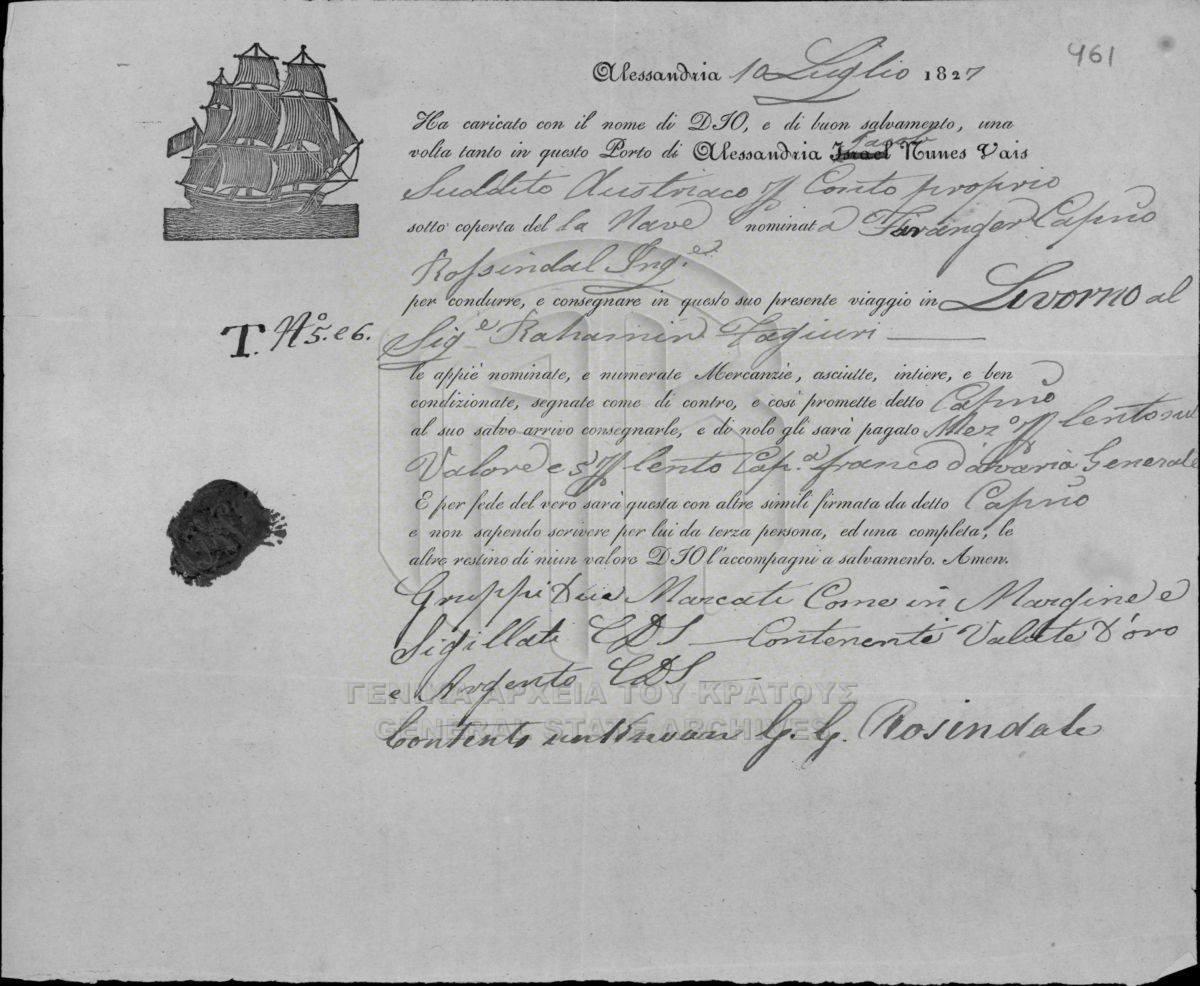 461
Alessandria 10 Luglio 1827
Ha caricato con il nome di DIO, e di buon salvamento, una
volta tanto in questo Porto di Alessandria Israel Jacob Nunes Vais
Suddito Austriaco Conto proprio
sotto coperta del la Nave nominata Capño
Rossindal Ing.e
per condurre, e consegnare in questo suo presente viaggio in Livorno al
T. Nº 5. e 6.
Sig.e Rahamin Tagiuri
le appiè nominate, e numerate Mercanzìe, asciutte, intiere, e ben
condizionate, segnate come di contro, e così promette detto Capño
al suo salvo arrivo consegnarle, e di nolo gli sarà pagato Mezº Cento sul
Valore e 5 Cento Cap.a franco d'avaria Generale
E per fede del vero sarà questa con altre simili firmata da detto Capño
e non sapendo scrivere per lui da terza persona, ed una completa, le
altre restino di niun valore DIO l'accompagni a salvamento. Amen.
Gruppi Due Marcati Come in Margine e
Sigillati CDS Contenenti Valute D'oro
e Argento CDS
ΓΕΝΙΚΑ ΑΡΧΕΙΑ ΤΟΥ ΚΡΑΤΟΥΣ
GENERAL STATE ARCHIVES
Contents unknown G. G. Rosindale